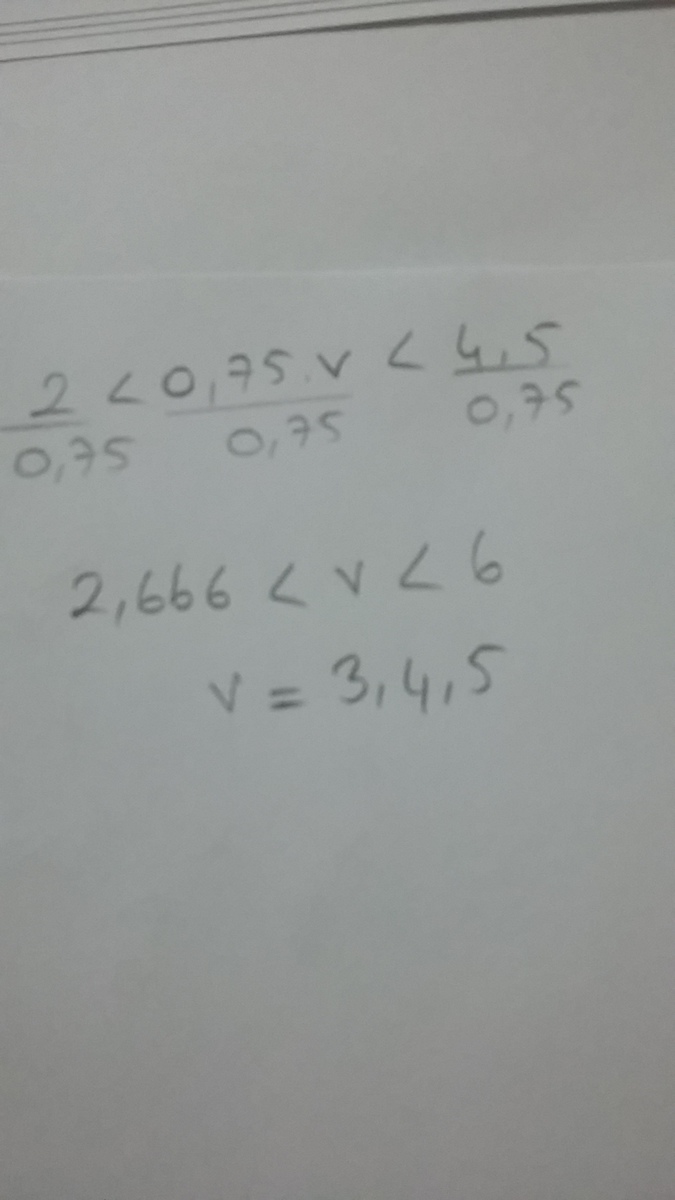 2 < 0,75.v < 4,5
0,75 0,75 0,75
2,666 < v < 6
v = 3,4,5